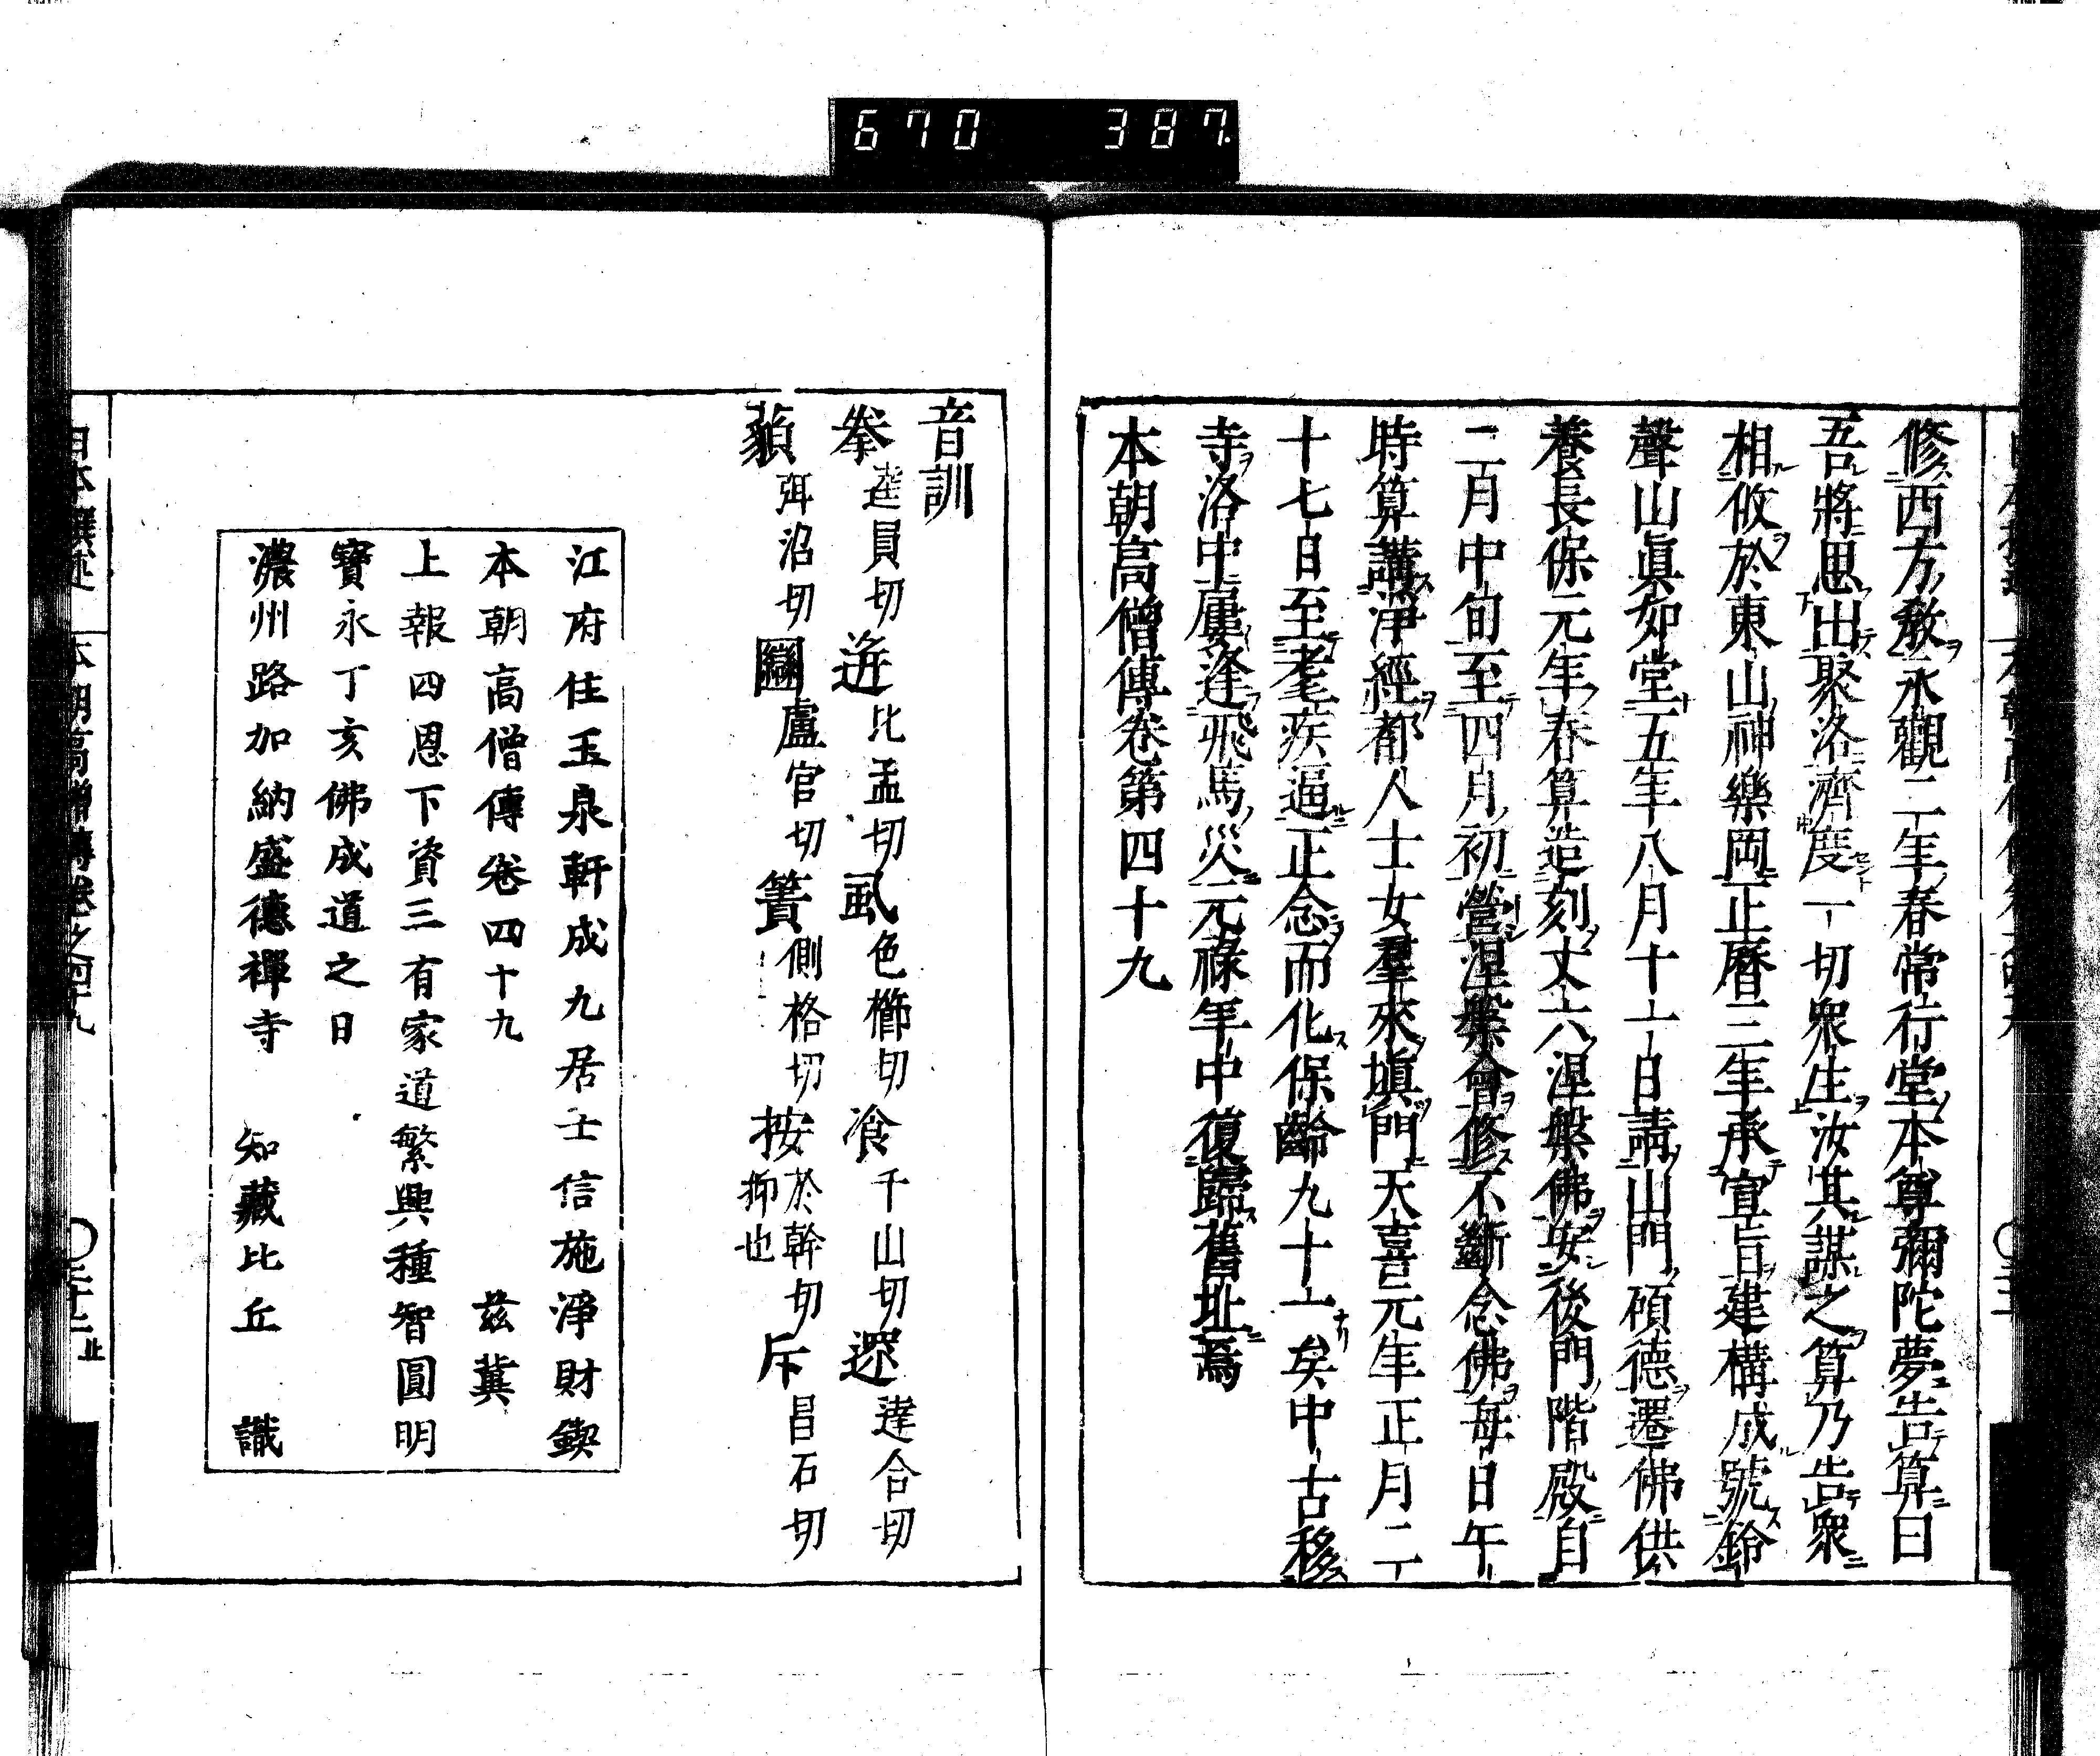 670 387
修西方教永觀二年春常行堂本尊彌陀夢告算曰
吾將思出聚洛濟度一切衆生汝其謀之算乃告衆
相攸於東山神樂岡正曆三年承宣旨建構成號鈴
聲山眞如堂五年八月十一日請山門碩德遷佛供
養長保元年春算造刻丈六涅槃佛安後門階殿自
二月中旬至四月初營涅槃會修不斷念佛每日午
時算講淨經都人士女羣來塡門天喜元年正月二
十七日至耄疾逼正念而化保齡九十一矣中古移
寺洛中屢逢飛馬災元祿年中復歸舊址焉
本朝高僧傳卷第四十九
音訓
拳逵員切 迸比孟切 虱色櫛切 飡千山切 遝達合切
藐弭沼切 圞盧官切 簀側格切 按於幹切抑也 斥昌石切
江府住玉泉軒成九居士信施淨財鍥
本朝高僧傳卷四十九 茲冀
上報四恩下資三有家道繁興種智圓明
寶永丁亥佛成道之日
濃州路加納盛德禪寺 知藏比丘 識
日本撰述 本朝高僧傳卷之四十九